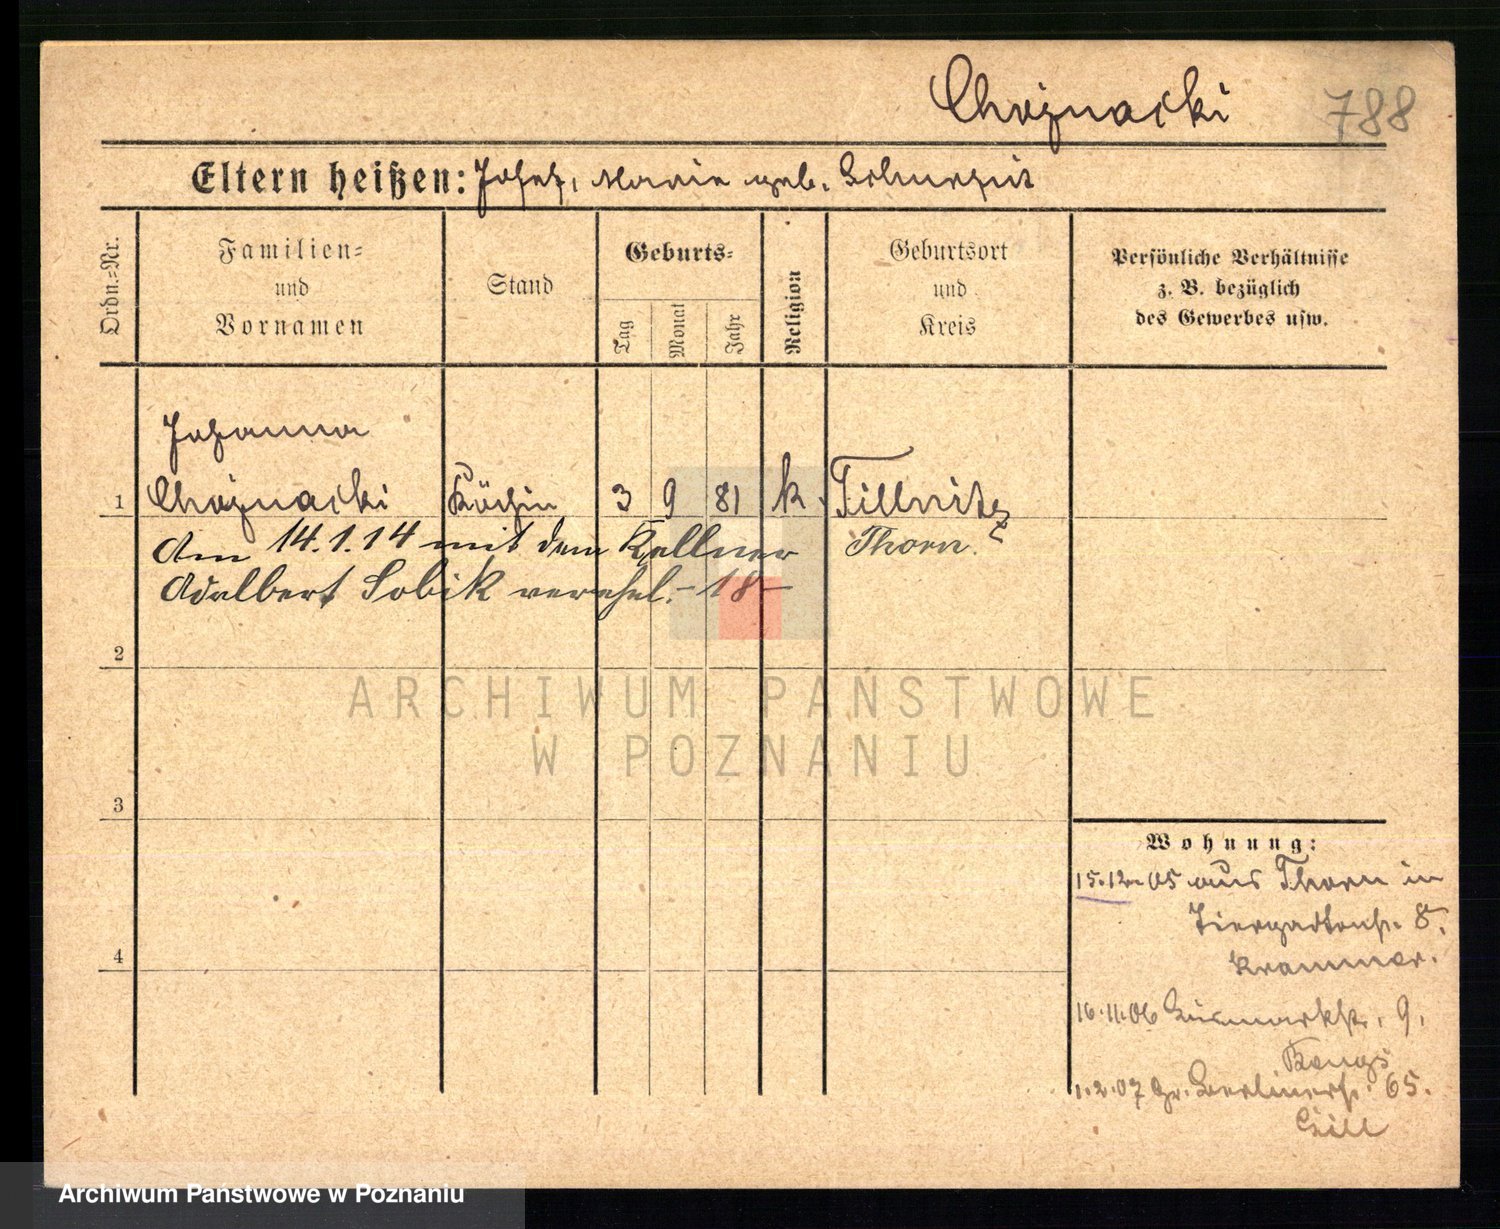 Chojnacki 788
Eltern heißen: Josef, Marie geb.
Ordn.=Nr.
Familien=
und
Vornamen
Stand
Geburts=
Tag
Monat
Jahr
Religion
Geburtsort
und
Kreis
Persönliche Verhältnisse
z. B. bezüglich
des Gewerbes usw.
Johanna
1 Chojnacki Köchin 3 9 81 k.
Am 14.1.14 mit dem Kellner Thorn.
Adalbert Sobik verehel. - 18 -
2
ARCHIWUM PAŃSTWOWE
W POZNANIU
3
Wohnung:
15.12.05 aus Thorn in
Tiergartenstr. 8.
Krammer.
4
16.11.06 Bismarckstr. 9,
1.2.07 Gr. Berlinerstr. 65.
Archiwum Państwowe w Poznaniu